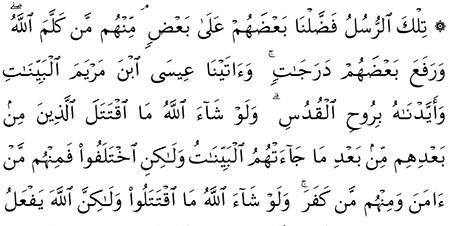 ۞ تِلۡكَ ٱلرُّسُلُ فَضَّلۡنَا بَعۡضَهُمۡ عَلَىٰ بَعۡضٖۘ مِّنۡهُم مَّن كَلَّمَ ٱللَّهُۖ
وَرَفَعَ بَعۡضَهُمۡ دَرَجَٰتٖۚ وَءَاتَيۡنَا عِيسَى ٱبۡنَ مَرۡيَمَ ٱلۡبَيِّنَٰتِ
وَأَيَّدۡنَٰهُ بِرُوحِ ٱلۡقُدُسِۗ وَلَوۡ شَآءَ ٱللَّهُ مَا ٱقۡتَتَلَ ٱلَّذِينَ مِنۢ
بَعۡدِهِم مِّنۢ بَعۡدِ مَا جَآءَتۡهُمُ ٱلۡبَيِّنَٰتُ وَلَٰكِنِ ٱخۡتَلَفُواْ فَمِنۡهُم مَّنۡ
ءَامَنَ وَمِنۡهُم مَّن كَفَرَۚ وَلَوۡ شَآءَ ٱللَّهُ مَا ٱقۡتَتَلُواْ وَلَٰكِنَّ ٱللَّهَ يَفۡعَلُ